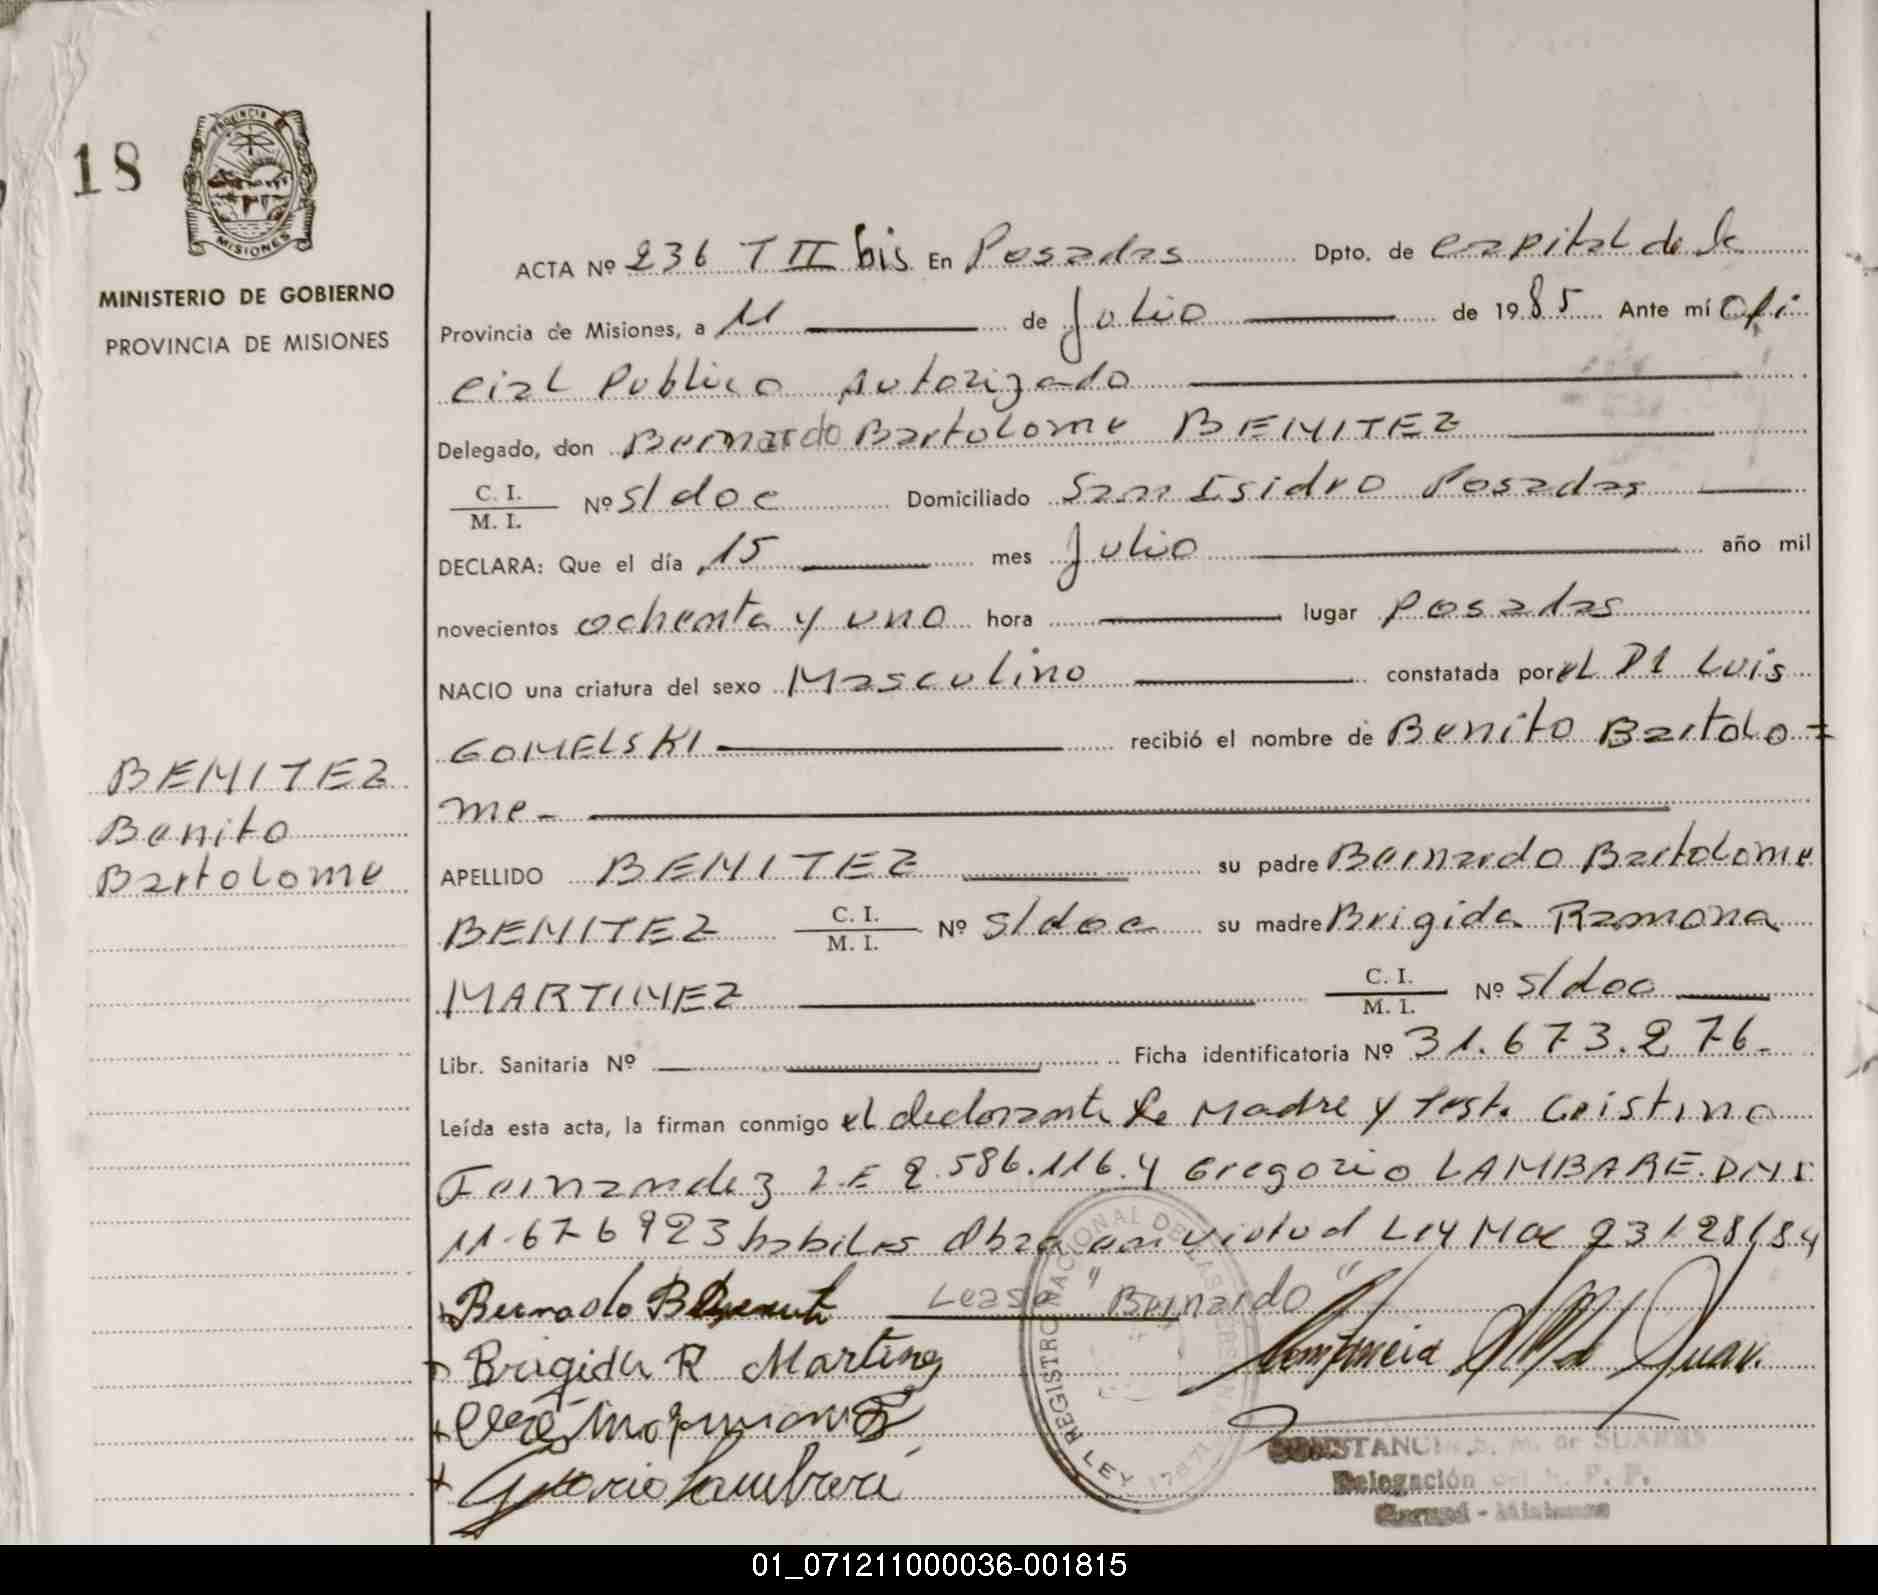 18
PROVINCIA DE
MISIONES
MINISTERIO DE GOBIERNO
PROVINCIA DE MISIONES
BENITEZ
Benito
Bartolome
ACTA Nº 236 T II bis En Posadas Dpto. de capital de la
Provincia de Misiones, a 11 de Julio de 1985 Ante mí Ofi
cial Publico Autorizado
Delegado, don Bernardo Bartolome BENITEZ
C. I.
M. I. Nº s/doc Domiciliado San Isidro Posadas
DECLARA: Que el día 15 mes Julio año mil
novecientos ochenta y uno hora lugar Posadas
NACIO una criatura del sexo Masculino constatada por el Dr Luis
GOMELSKI recibió el nombre de Benito Bartolo=
me-
APELLIDO BENITEZ su padre Bernardo Bartolome
BENITEZ C. I.
M. I. Nº s/doc su madre Brigida Ramona
MARTINEZ C. I.
M. I. Nº s/doc
Libr. Sanitaria Nº Ficha identificatoria Nº 31.673.276-
Leída esta acta, la firman conmigo el declarante la Madre y test. Cristino
Fernandez L.E 2.586.116.y Gregorio LAMBARE.DNI
11.676923 habiles Obra en virtud Ley Nac 23128/84
Lease "Bernardo"
Brigida R Martinez
REGISTRO NACIONAL DE LAS PERSONAS
LEY 17671
CONSTANCIA S. M. de SUAREZ
Delegación del R. P. P.
Garupá - Misiones
01_071211000036-001815